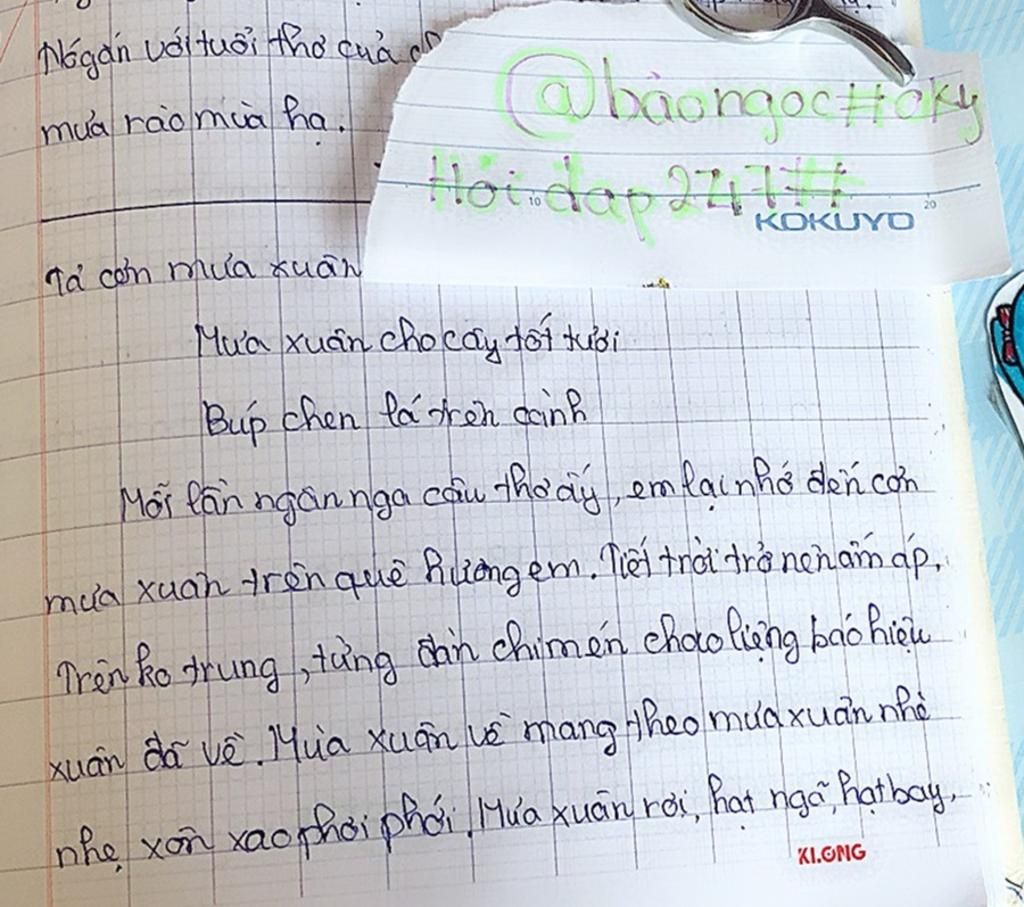 Nó gắn với tuổi thơ của
mưa rào mùa hạ.
@bảongọc##oky
Hỏi đap247##
10
20
KOKUYO
Tả cơn mưa xuân
Mưa xuân cho cây tốt tươi
Búp chen lá trên cành
Mỗi lần ngân nga câu thơ ấy, em lại nhớ đến cơn
mưa xuân trên quê hương em. Tiết trời trở nên ấm áp.
Trên ko trung, từng đàn chim én chao liệng báo hiệu
xuân đã về. Mùa xuân về mang theo mưa xuân nhè
nhẹ, xôn xao phơi phới. Mưa xuân rơi, hạt ngã, hạt bay,
KLONG